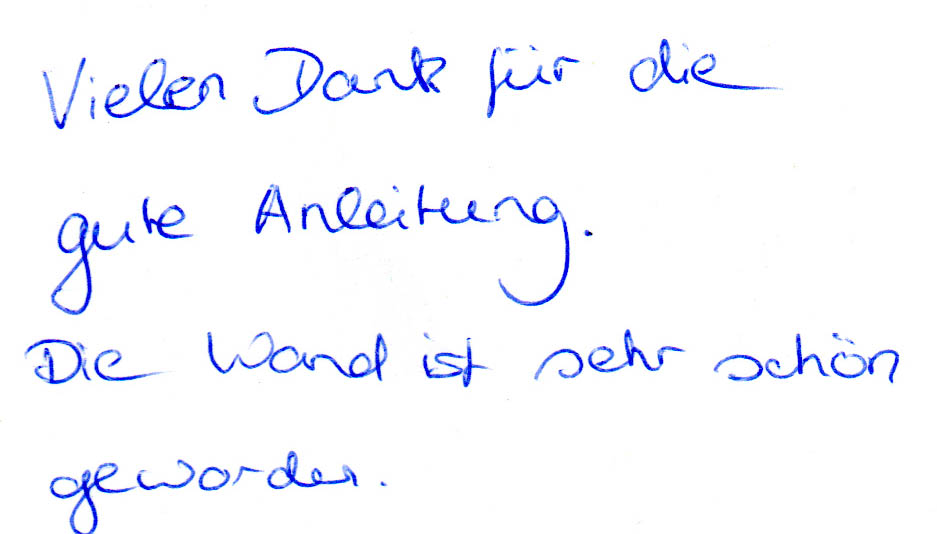 Vielen Dank für die
gute Anleitung.
Die Wand ist sehr schön
geworden.